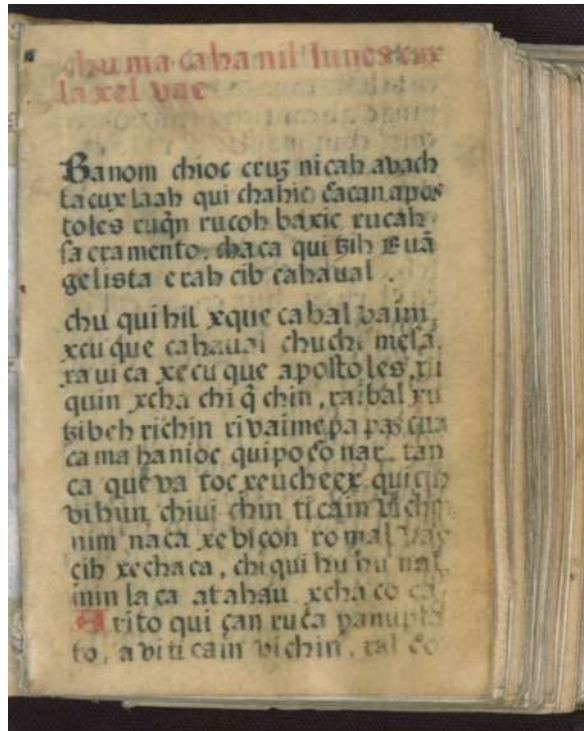 chu ma caha nil lunes cux
la xel vae
Banom chioc cruz nicah avach
ta cux laah qui chahic cacan apos
toles ruqn rucoh baxic rucah
sacramento. chaca qui tzih Euã
gelista erah cib cahaual.
chu qui hil xque cahal vaim,
xcu que cahaual chuchi mesa.
ra ui ca xe cu que apostoles, ru
quin xcha chi q̃ chin, raibal xu
tzibeh richin ri vaim epa pascua
ca ma hanioc quipoco nar. tan
ca que va toc xeucheex qui
vi hun chiui chin ti cam vichin
nim naca xe bicon ro mal
cih xechaca, chi qui hu hu nal,
min la ca at ahau xcha co ca.
A rito qui çan ruca panupla
to, a vi ti cain vichin, tal co